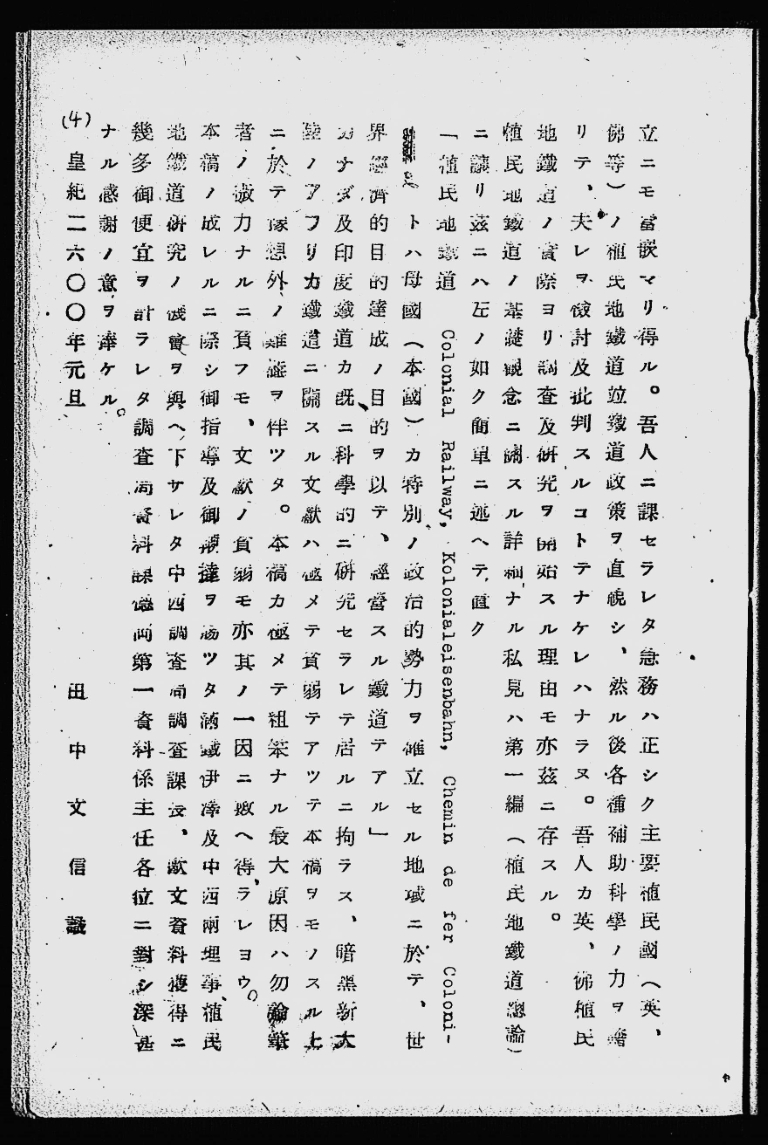 立ニモ當嵌マリ得ル。吾人ニ課セラレタ急務ハ正シク主要植民國(英、
佛等)ノ植民地鐵道竝鐵道政策ヲ直視シ、然ル後各種補助科學ノ力ヲ藉
リテ、夫レヲ檢討及批判スルコトテナケレハナラヌ。吾人カ英、佛植民
地鐵道ノ實際ヨリ調査及研究ヲ開始スル理由モ亦茲ニ存スル。
植民地鐵道ノ基礎觀念ニ關スル詳細ナル私見ハ第一編(植民地鐵道總論)
ニ讓リ茲ニハ左ノ如ク簡單ニ述ヘテ置ク
「植民地鐵道 Colonial Railway, Kolonialeisenbahn, Chemin de fer Coloni-
トハ母國(本國)カ特別ノ政治的勢力ヲ確立セル地域ニ於テ、世
界經濟的目的達成ノ目的ヲ以テ、經營スル鐵道テアル」
カナダ及印度鐵道カ既ニ科學的ニ研究セラレテ居ルニ拘ラス、暗黑新大
陸ノアフリカ鐵道ニ關スル文獻ハ極メテ貧弱テアツテ本稿ヲモノスル上
ニ於テ豫想外ノ難澁ヲ伴ツタ。本稿カ極メテ粗笨ナル最大原因ハ勿論筆
者ノ微力ナルニ負フモ、文獻ノ貧弱モ亦其ノ一因ニ數ヘ得ラレヨウ。
本稿ノ成レルニ際シ御指導及御鞭撻ヲ賜ツタ滿鐵伊澤及中西兩理事植民
地鐵道研究ノ機會ヲ與ヘ下サレタ中西調査局調査課長、歐文資料獲得ニ
幾多御便宜ヲ計ラレタ調査局資料課 第一資料係主任各位ニ對シ深甚
ナル感謝ノ意ヲ捧ケル。
(4)
皇紀二六〇〇年元旦
田中文信識